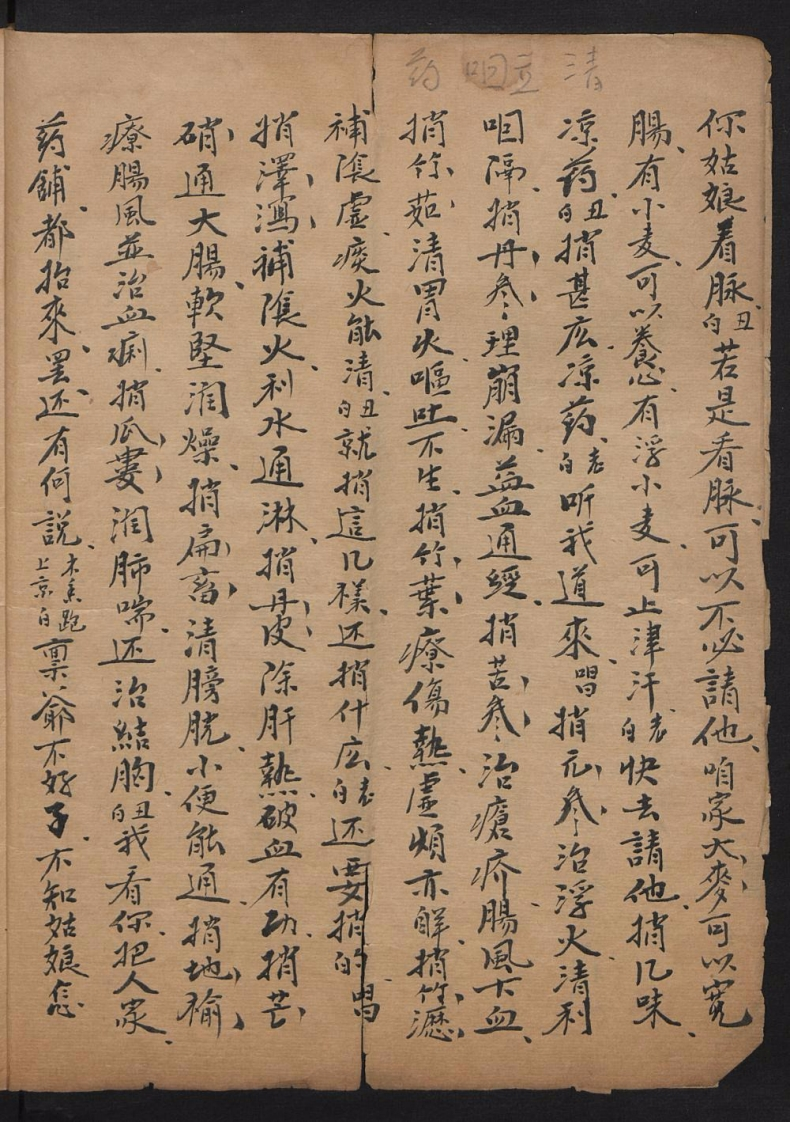 清 並 咽 药
你姑娘看脉丑白若是看脉可以不必請他咱家大麥可以寛
腸有小麦可以養心有浮小麦可止津汗老白快去請他捎几味
凉药丑白捎甚広凉药老白听我道來唱捎元参治浮火清利
咽隔捎丹参理崩漏益血通經捎苦参治瘡疥腸風下血
捎竹茹清胃火嘔吐不生捎竹葉療傷熱虚煩亦解捎竹瀝
補陰虚痰火能清丑白就捎這几様还捎什広老白还要捎的唱
捎澤瀉補陰火利水通淋捎丹皮除肝熱破血有功捎芒
硝通大腸軟堅润燥捎扁畜清膀胱小便能通捎地榆
療腸風並治血痢捎瓜蔞润肺喘还治結胸丑白我看你把人家
药舖都抬來罢还有何説木香跑上京白禀爺不好了不知姑娘怎